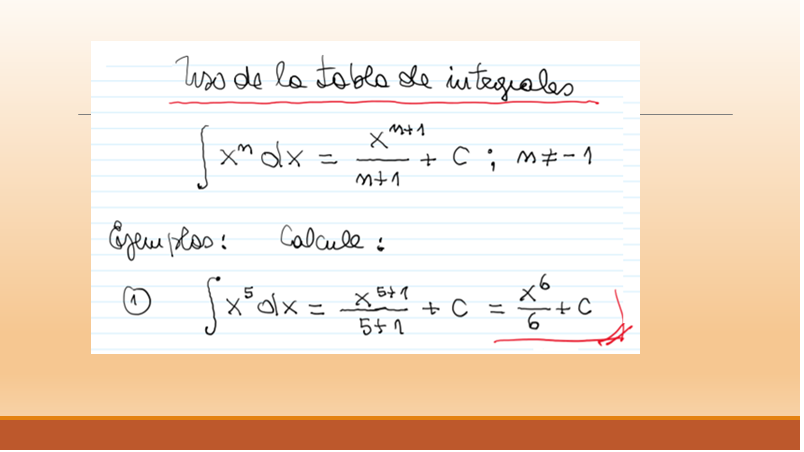 Uso de la tabla de integrales
∫ xⁿ dx = xⁿ⁺¹/n+1 + C ; n ≠ -1
Ejemplos: Calcule:
① ∫ x⁵ dx = x⁵⁺¹/5+1 + C = x⁶/6 + C